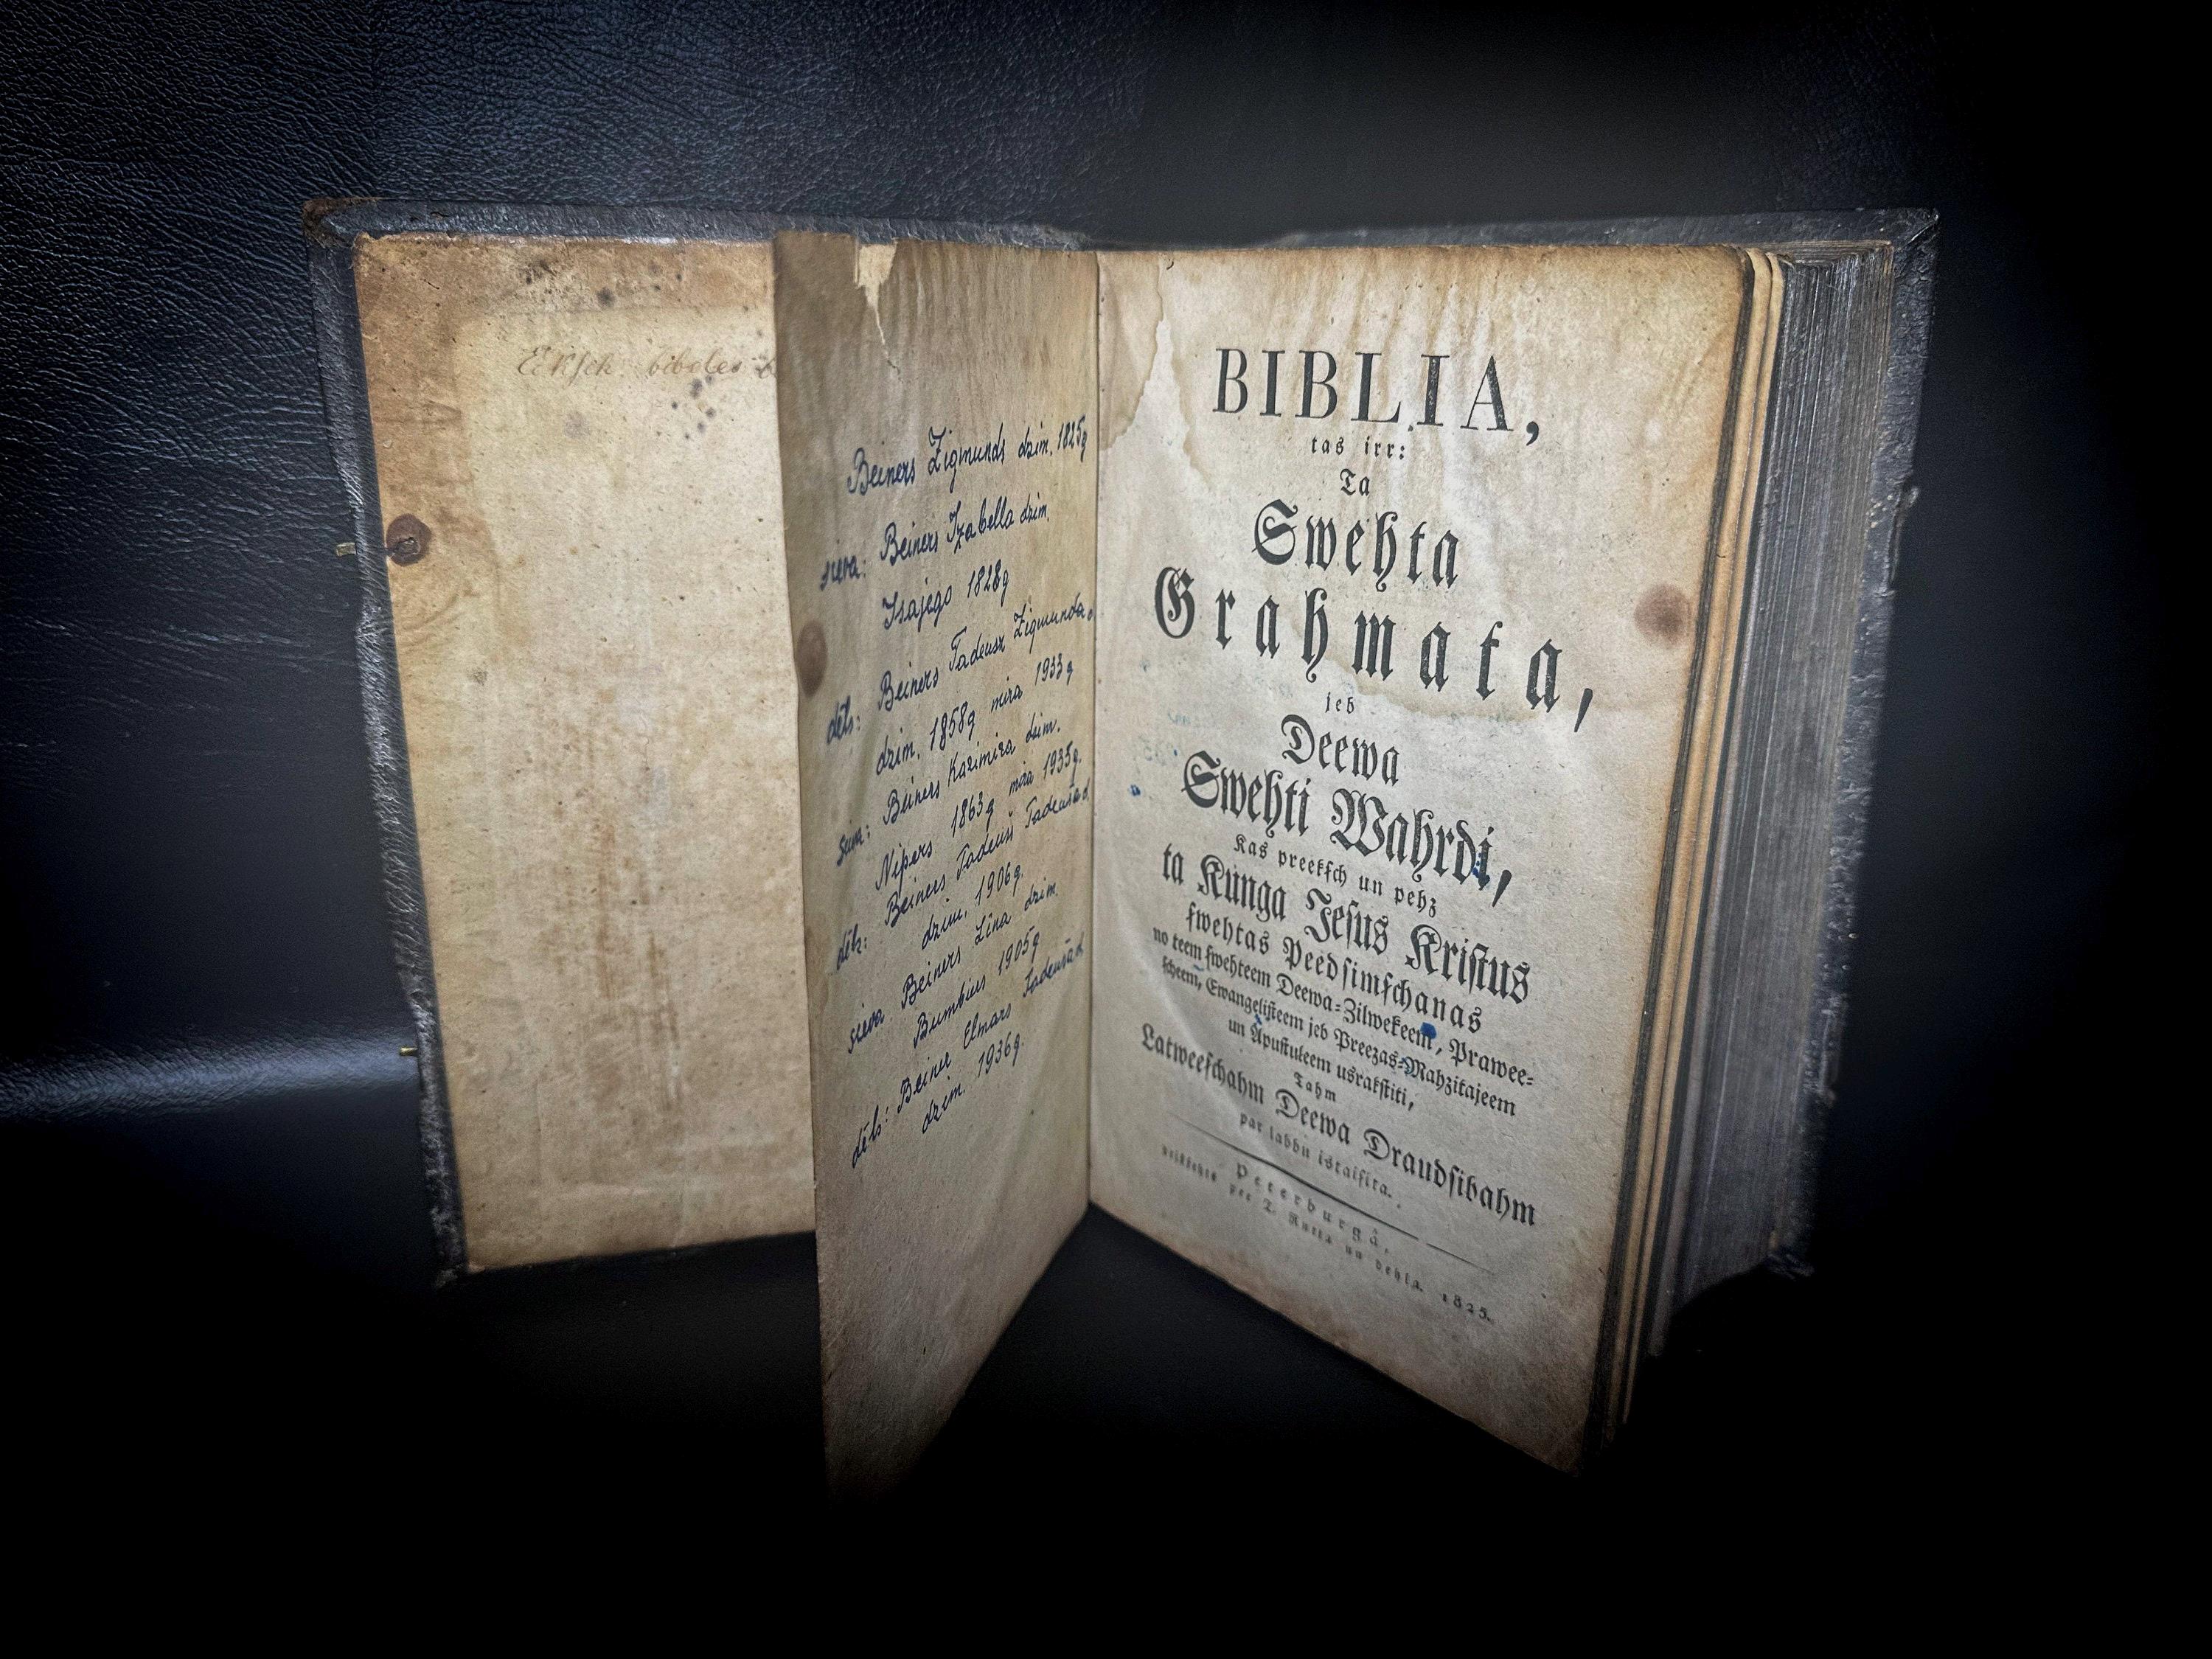 Beiners Zigmunds dzim. 1825g
sieva: Beiners Izabella dzim.
1828g
dēls: Beiners Tadeusz Zigmunda d.
dzim. 1858g mira 1933g
Beiners Kazimira dzim.
Nipers 1863g mira 1935g.
Beiners Tadeušs Tadeuša d.
dzim. 1906g.
sieva: Beiners Līna dzim.
Bumbius 1905g
dēls: Beiners Elmars Tadeuša d.
dzim. 1936g.
BIBLIA,
tas irr:
Ta
Swehta
Grahmata,
jeb
Deewa
Swehti Wahrdi,
Kas preekſch un pehz
ta Kunga Jeſus Kriſtus
ſwehtas Peedſimſchanas
no teem ſwehteem Deewa-Zilwekeem, Prawee-
ſcheem, Ewangeliſteem jeb Preezas-Mahzitajeem
un Apuſtuleem usrakſtiti,
Tahm
Latweeſchahm Deewa Draudſibahm
par labbu istaiſita.
Peterburgâ,
pee T. Rutta un dehla. 1825.